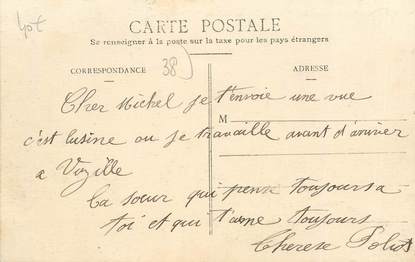 40€
CARTE POSTALE
Se renseigner à la poste sur la taxe pour les pays étrangers
CORRESPONDANCE
38
ADRESSE
Cher Michel je t'envoie une vue
M
c'est lusine ou je travaille avant d'arriver
a Vizille
ta soeur qui pense toujours a
toi et qui t'aime toujours
Therese